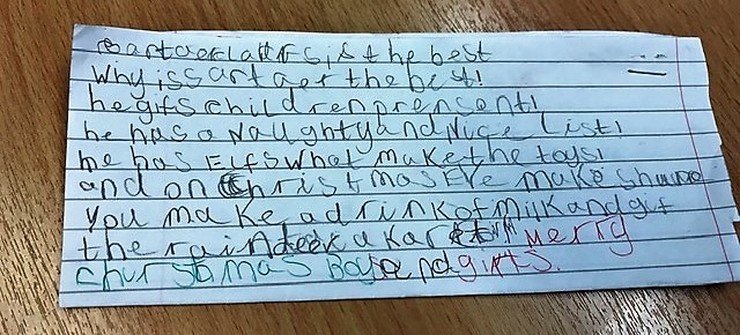 sartaerklaws is the best
Why is sartaer the best!
he gifs children prensent!
he has a Naughty and Nice List!
he has Elfs what make the toys!
and on Christmas Eve make shure
you make a drink of milk and gif
the raindeer a karet!!! Merry
churstmas Boys and girls.